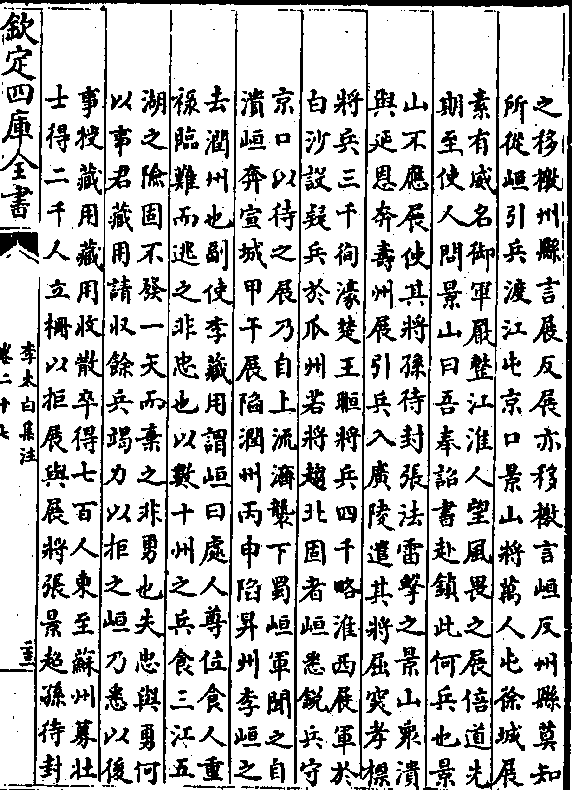 之移檄州縣言展反展亦移檄言峘反州縣莫知
所從峘引兵渡江屯京口景山將萬人屯徐城展
素有威名御軍嚴整江淮人望風畏之展倍道先
期至使人問景山曰吾奉詔書赴鎮此何兵也景
山不應展使其將孫待封張法雷擊之景山衆潰
與延恩奔壽州展引兵入廣陵遣其將屈突孝標
將兵三千徇濠楚王暅將兵四千略淮西展軍於
白沙設疑兵於瓜州若將趨北固者峘悉銳兵守
京口以待之展乃自上流濟襲下蜀峘軍聞之自
潰峘奔宣城甲午展陷潤州丙申陷昇州李峘之
去潤州也副使李藏用謂峘曰處人尊位食人重
祿臨難而逃之非忠也以數十州之兵食三江五
湖之險固不發一矢而棄之非勇也夫忠與勇何
以事君藏用請収餘兵竭力以拒之峘乃悉以後
事授藏用藏用收散卒得七百人東至蘇州募壯
士得二千人立柵以拒展與展將張景超孫待封
欽定四庫全書
李太白集注
卷二十七